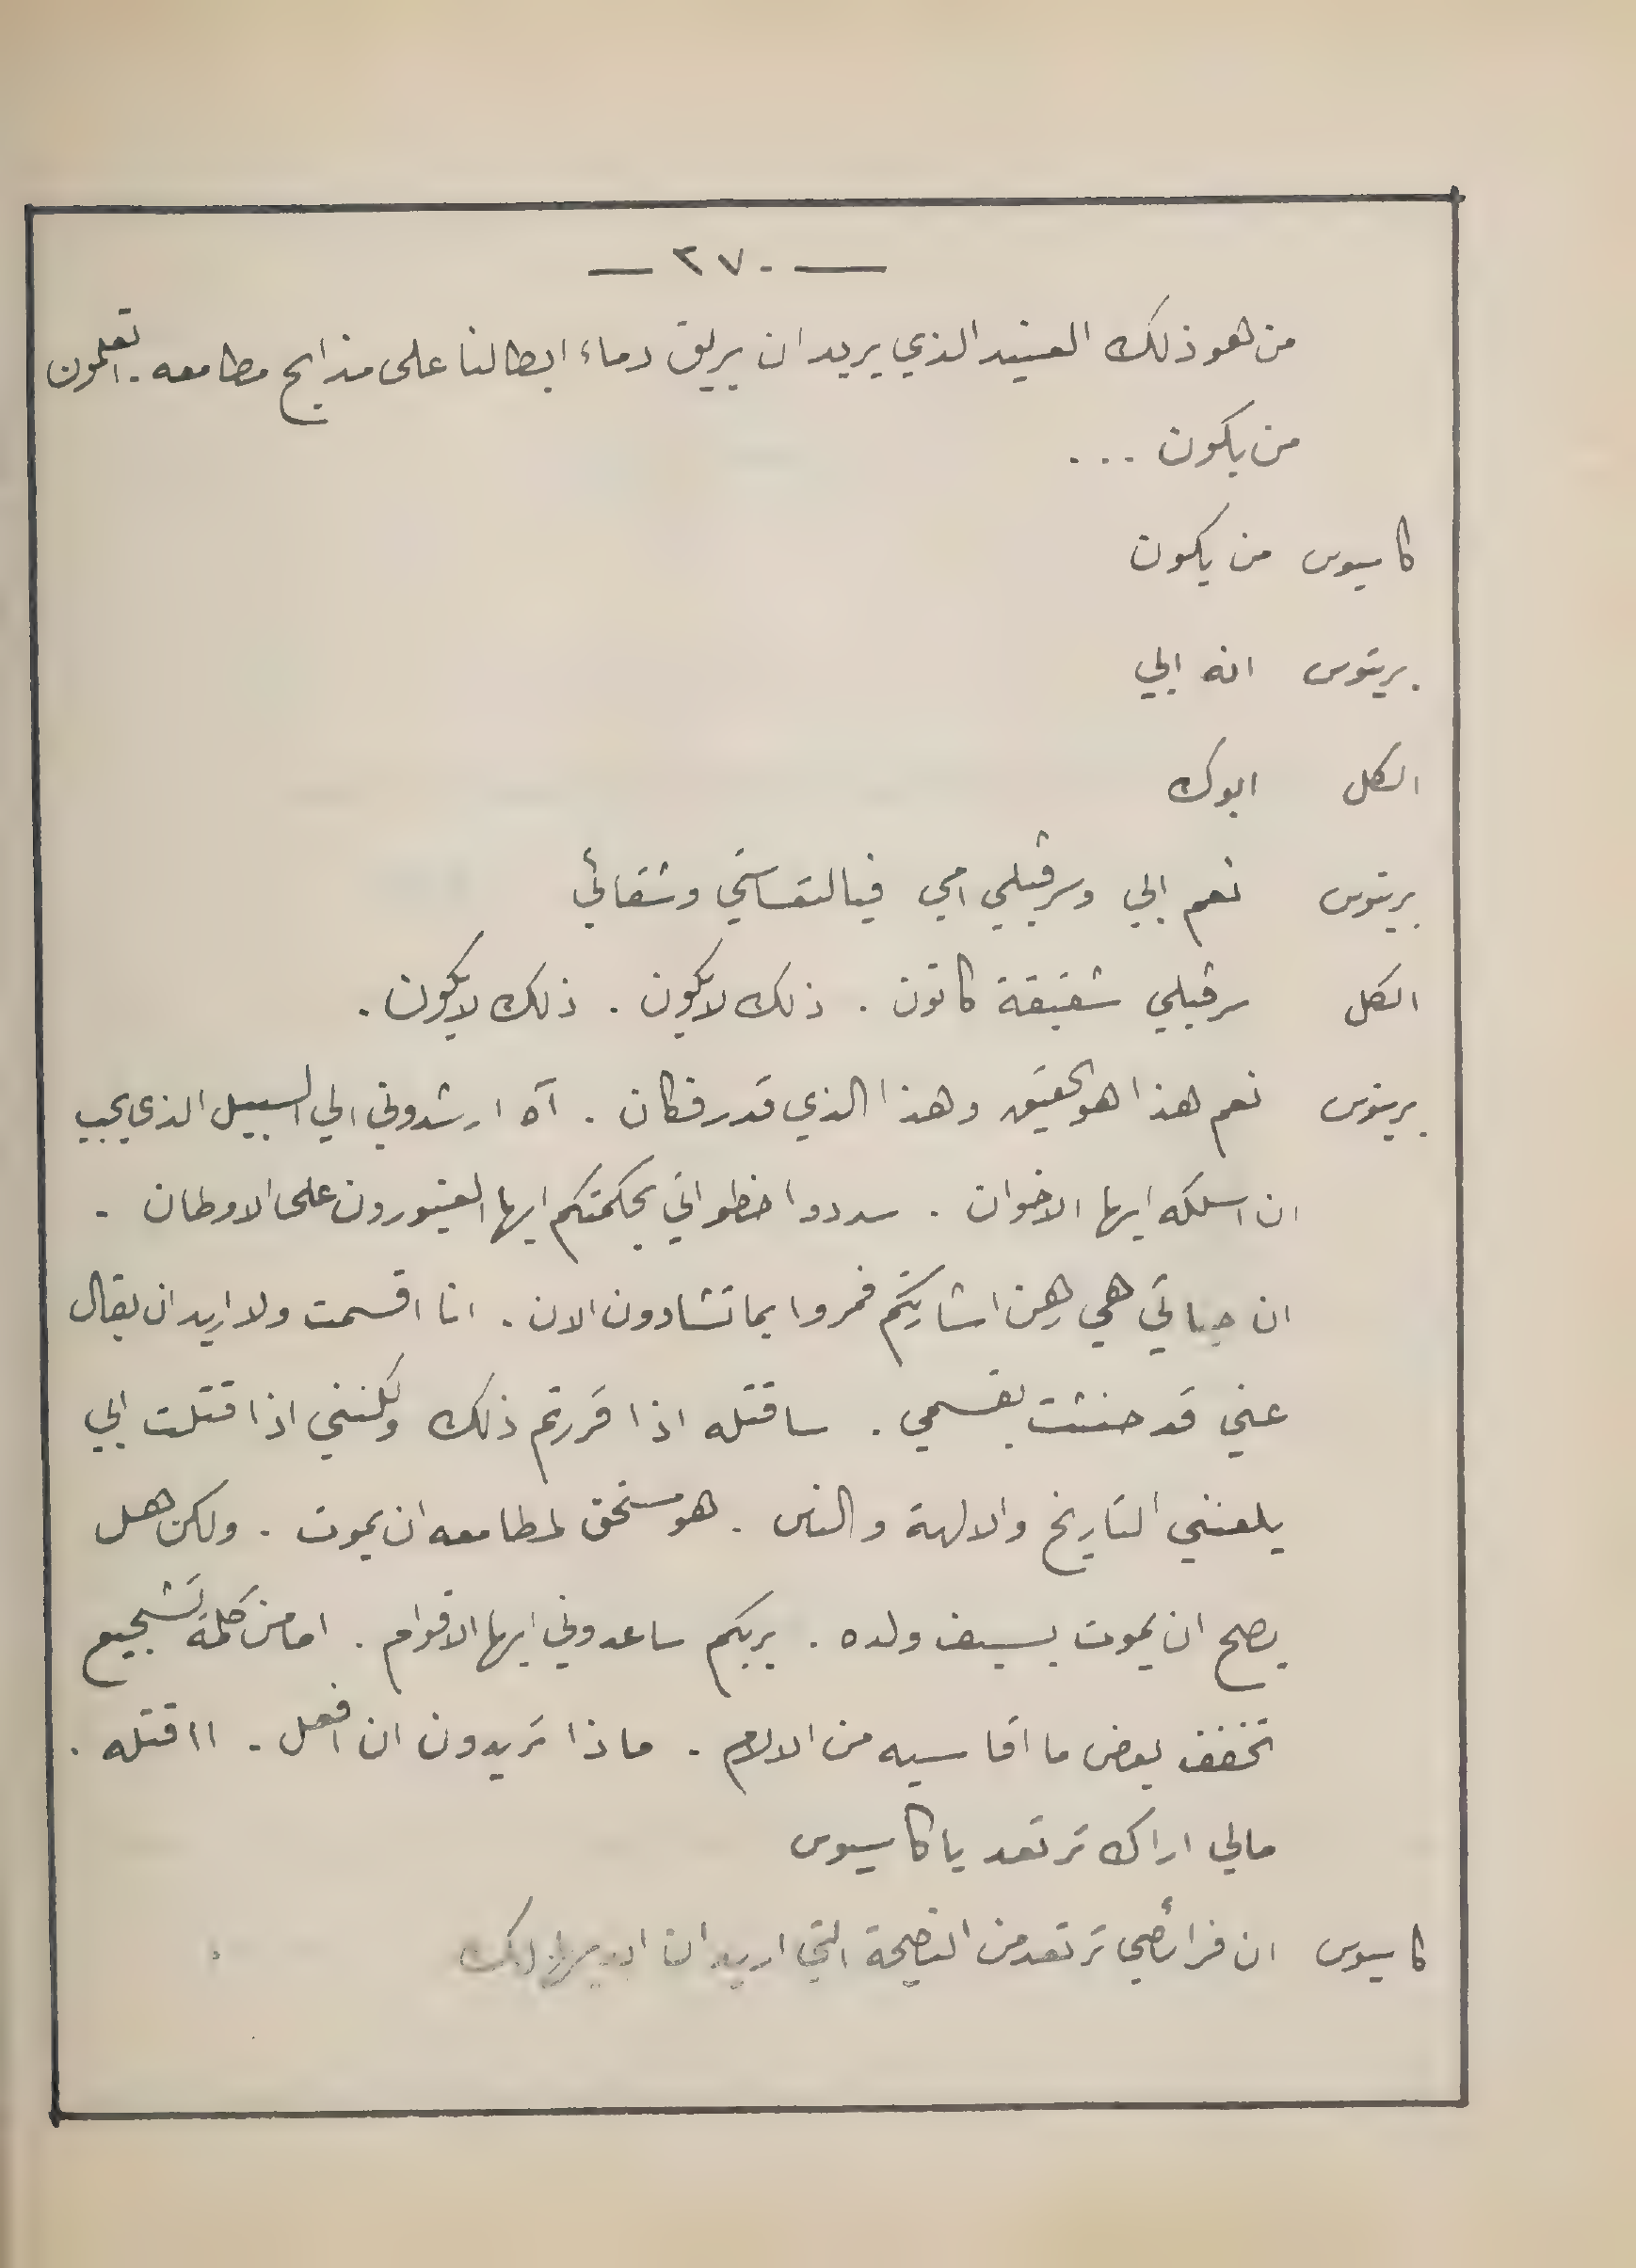 — ٢٧٠ —
من هو ذلك العنيد الذي يريد ان يريق دماء ابطالنا على مذابح مطامعه . اتعلمون
من يكون ...
كاسيوس من يكون
بريتوس انه ابي
الكل ابوك
بريتوس نعم ابي وسرڤيلي امي فيا لتعاستي وشقائي
الكل سرڤيلي شقيقة كاتون . ذلك لا يكون . ذلك لا يكون .
بريتوس نعم هذا هو الحقيق وهذا الذي قدر فكان . آه ارشدوني الي السبيل الذي يجب
ان اسلكه ايها الاخوان . سددوا خطواتي بحكمتكم ايها الغيورون على الاوطان .
ان حياتي هي رهن اشارتكم فمروا بما تشاءون الان . انا اقسمت ولا اريد ان يقال
عني قد حنثت بقسمي . ساقتله اذا قررتم ذلك ولكنني اذا قتلت ابي
يلعنني التاريخ والالهة والناس . هو مستحق لمطامعه ان يموت . ولكن هل
يصح ان يموت بسيف ولده . بربكم ساعدوني ايها الاقوام . اما من كلمة تشجيع
تخفف بعض ما اقاسيه من الالام . ماذا تريدون ان افعل . ااقتله .
مالي اراك ترتعد يا كاسيوس
كاسيوس ان فرائصي ترتعد من النصيحة التي اريد ان لك